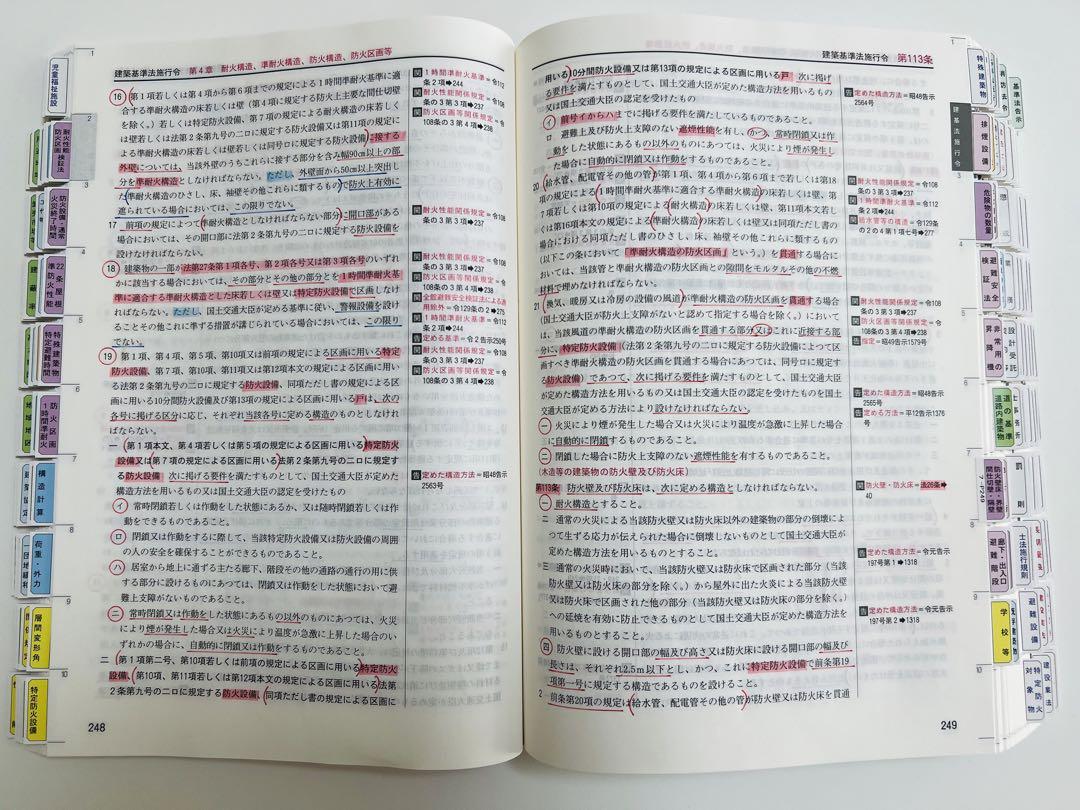 建築基準法施行令 第4章 耐火構造、準耐火構造、防火構造、防火区画等
16 第1項若しくは第4項から第6項までの規定による1時間準耐火基準に適
合する準耐火構造の床若しくは壁(第4項に規定する防火上主要な間仕切壁
を除く。)若しくは特定防火設備、第7項の規定による耐火構造の床若しく
は壁若しくは法第2条第九号の二ロに規定する防火設備又は第11項の規定に
よる準耐火構造の床若しくは壁若しくは同号ロに規定する防火設備に接する
外壁については、当該外壁のうちこれらに接する部分を含み幅90cm以上の部
分を準耐火構造としなければならない。ただし、外壁面から50cm以上突出し
た準耐火構造のひさし、床、袖壁その他これらに類するもので防火上有効に
遮られている場合においては、この限りでない。
17 前項の規定によつて準耐火構造としなければならない部分に開口部がある
場合においては、その開口部に法第2条第九号の二ロに規定する防火設備を
設けなければならない。
18 建築物の一部が法第27条第1項各号、第2項各号又は第3項各号のいずれ
かに該当する場合においては、その部分とその他の部分とを1時間準耐火基
準に適合する準耐火構造とした床若しくは壁又は特定防火設備で区画しなけ
ればならない。ただし、国土交通大臣が定める基準に従い、警報設備を設け
ることその他これに準ずる措置が講じられている場合においては、この限り
でない。
19 第1項、第4項、第5項、第10項又は前項の規定による区画に用いる特定
防火設備、第7項、第10項、第11項又は第12項本文の規定による区画に用い
る法第2条第九号の二ロに規定する防火設備、同項ただし書の規定による区
画に用いる10分間防火設備及び第13項の規定による区画に用いる戸は、次の
各号に掲げる区分に応じ、それぞれ当該各号に定める構造のものとしなけれ
ばならない。
一 第1項本文、第4項若しくは第5項の規定による区画に用いる特定防火
設備又は第7項の規定による区画に用いる法第2条第九号の二ロに規定す
る防火設備 次に掲げる要件を満たすものとして、国土交通大臣が定めた
構造方法を用いるもの又は国土交通大臣の認定を受けたもの
イ 常時閉鎖若しくは作動をした状態にあるか、又は随時閉鎖若しくは作
動をできるものであること。
ロ 閉鎖又は作動をするに際して、当該特定防火設備又は防火設備の周囲
の人の安全を確保することができるものであること。
ハ 居室から地上に通ずる主たる廊下、階段その他の通路の通行の用に供
する部分に設けるものにあつては、閉鎖又は作動をした状態において避
難上支障がないものであること。
ニ 常時閉鎖又は作動をした状態にあるもの以外のものにあつては、火災
により煙が発生した場合又は火災により温度が急激に上昇した場合のい
ずれかの場合に、自動的に閉鎖又は作動をするものであること。
二 第1項第二号、第10項若しくは前項の規定による区画に用いる特定防火
設備、第10項、第11項若しくは第12項本文の規定による区画に用いる法第
2条第九号の二ロに規定する防火設備、同項ただし書の規定による区画に
関 1時間準耐火基準=令112
条2項➡244
関 耐火性能関係規定=令108
条の3第3項➡237
関 防火区画等関係規定=令
108条の3第4項➡238
関 耐火性能関係規定=令108
条の3第3項➡237
関 耐火性能関係規定=令108
条の3第3項➡237
関 防火区画等関係規定=令
108条の3第4項➡238
関 全館避難安全検証法による適
用除外=令129条の2➡275
関 1時間準耐火基準=令112
条2項➡244
告 定める基準=令2告示250号
関 耐火性能関係規定=令108
条の3第3項➡237
関 防火区画等関係規定=令
108条の3第4項➡238
告 定めた構造方法=昭48告示
2563号
248
建築基準法施行令 第113条
用いる10分間防火設備又は第13項の規定による区画に用いる戸 次に掲げ
る要件を満たすものとして、国土交通大臣が定めた構造方法を用いるもの
又は国土交通大臣の認定を受けたもの
イ 前号イからハまでに掲げる要件を満たしているものであること。
ロ 避難上及び防火上支障のない遮煙性能を有し、かつ、常時閉鎖又は作
動をした状態にあるもの以外のものにあつては、火災により煙が発生し
た場合に自動的に閉鎖又は作動をするものであること。
20 給水管、配電管その他の管が第1項、第4項から第6項まで若しくは第18
項の規定による1時間準耐火基準に適合する準耐火構造の床若しくは壁、第
7項若しくは第10項の規定による耐火構造の床若しくは壁、第11項本文若し
くは第16項本文の規定による準耐火構造の床若しくは壁又は同項ただし書の
場合における同項ただし書のひさし、床、袖壁その他これらに類するもの
(以下この条において「準耐火構造の防火区画」という。)を貫通する場合に
おいては、当該管と準耐火構造の防火区画との隙間をモルタルその他の不燃
材料で埋めなければならない。
21 換気、暖房又は冷房の設備の風道が準耐火構造の防火区画を貫通する場合
(国土交通大臣が防火上支障がないと認めて指定する場合を除く。)において
は、当該風道の準耐火構造の防火区画を貫通する部分又はこれに近接する部
分に、特定防火設備(法第2条第九号の二ロに規定する防火設備によつて区
画すべき準耐火構造の防火区画を貫通する場合にあつては、同号ロに規定す
る防火設備)であつて、次に掲げる要件を満たすものとして、国土交通大臣
が定めた構造方法を用いるもの又は国土交通大臣の認定を受けたものを国土
交通大臣が定める方法により設けなければならない。
一 火災により煙が発生した場合又は火災により温度が急激に上昇した場合
に自動的に閉鎖するものであること。
二 閉鎖した場合に防火上支障のない遮煙性能を有するものであること。
(木造等の建築物の防火壁及び防火床)
第113条 防火壁及び防火床は、次に定める構造としなければならない。
一 耐火構造とすること。
二 通常の火災による当該防火壁又は防火床以外の建築物の部分の倒壊によ
つて生ずる応力が伝えられた場合に倒壊しないものとして国土交通大臣が
定めた構造方法を用いるものとすること。
三 通常の火災時において、当該防火壁又は防火床で区画された部分(当該
防火壁又は防火床の部分を除く。)から屋外に出た火炎による当該防火壁
又は防火床で区画された他の部分(当該防火壁又は防火床の部分を除く。)
への延焼を有効に防止できるものとして国土交通大臣が定めた構造方法を
用いるものとすること。
四 防火壁に設ける開口部の幅及び高さ又は防火床に設ける開口部の幅及び
長さは、それぞれ2.5m以下とし、かつ、これに特定防火設備で前条第19
項第一号に規定する構造であるものを設けること。
2 前条第20項の規定は給水管、配電管その他の管が防火壁又は防火床を貫通
告 定めた構造方法=昭48告示
2564号
関 耐火性能関係規定=令108
条の3第3項➡237
関 1時間準耐火基準=令112
条2項➡244
関 給水管等の構造=令129条
の2の4第1項七号➡277
関 耐火性能関係規定=令108
条の3第3項➡237
関 防火区画等関係規定=令
108条の3第4項➡238
告 指定=昭49告示1579号
告 定めた構造方法=昭48告示
2565号
告 定める方法=平12告示1376
号
関 防火壁・防火床=法26条➡
40
告 定めた構造方法=令元告示
197号第1➡1318
告 定めた構造方法=令元告示
197号第2➡1318
249
児童福祉施設
耐火性能検証法
防火区画
防火設備・通常
火災終了時間
建蔽率
22条屋根
準防火性能
特殊建築物
特定避難時間
防火区画
1時間準耐火
構造計算
荷重・外力
層間変形角
特定防火設備
特殊建築物
排煙設備
建基法施行令
危険物の数量
避難安全
検証法
非常用の
昇降機
設計受託
道の基準
道路内建築物
罰則
防火壁・防火床・界壁
間仕切壁・隔壁
士法施行規則
廊下・出入口
避難階段
避難設備
学校等
建設業法
特定防火
対象物
基準法告示